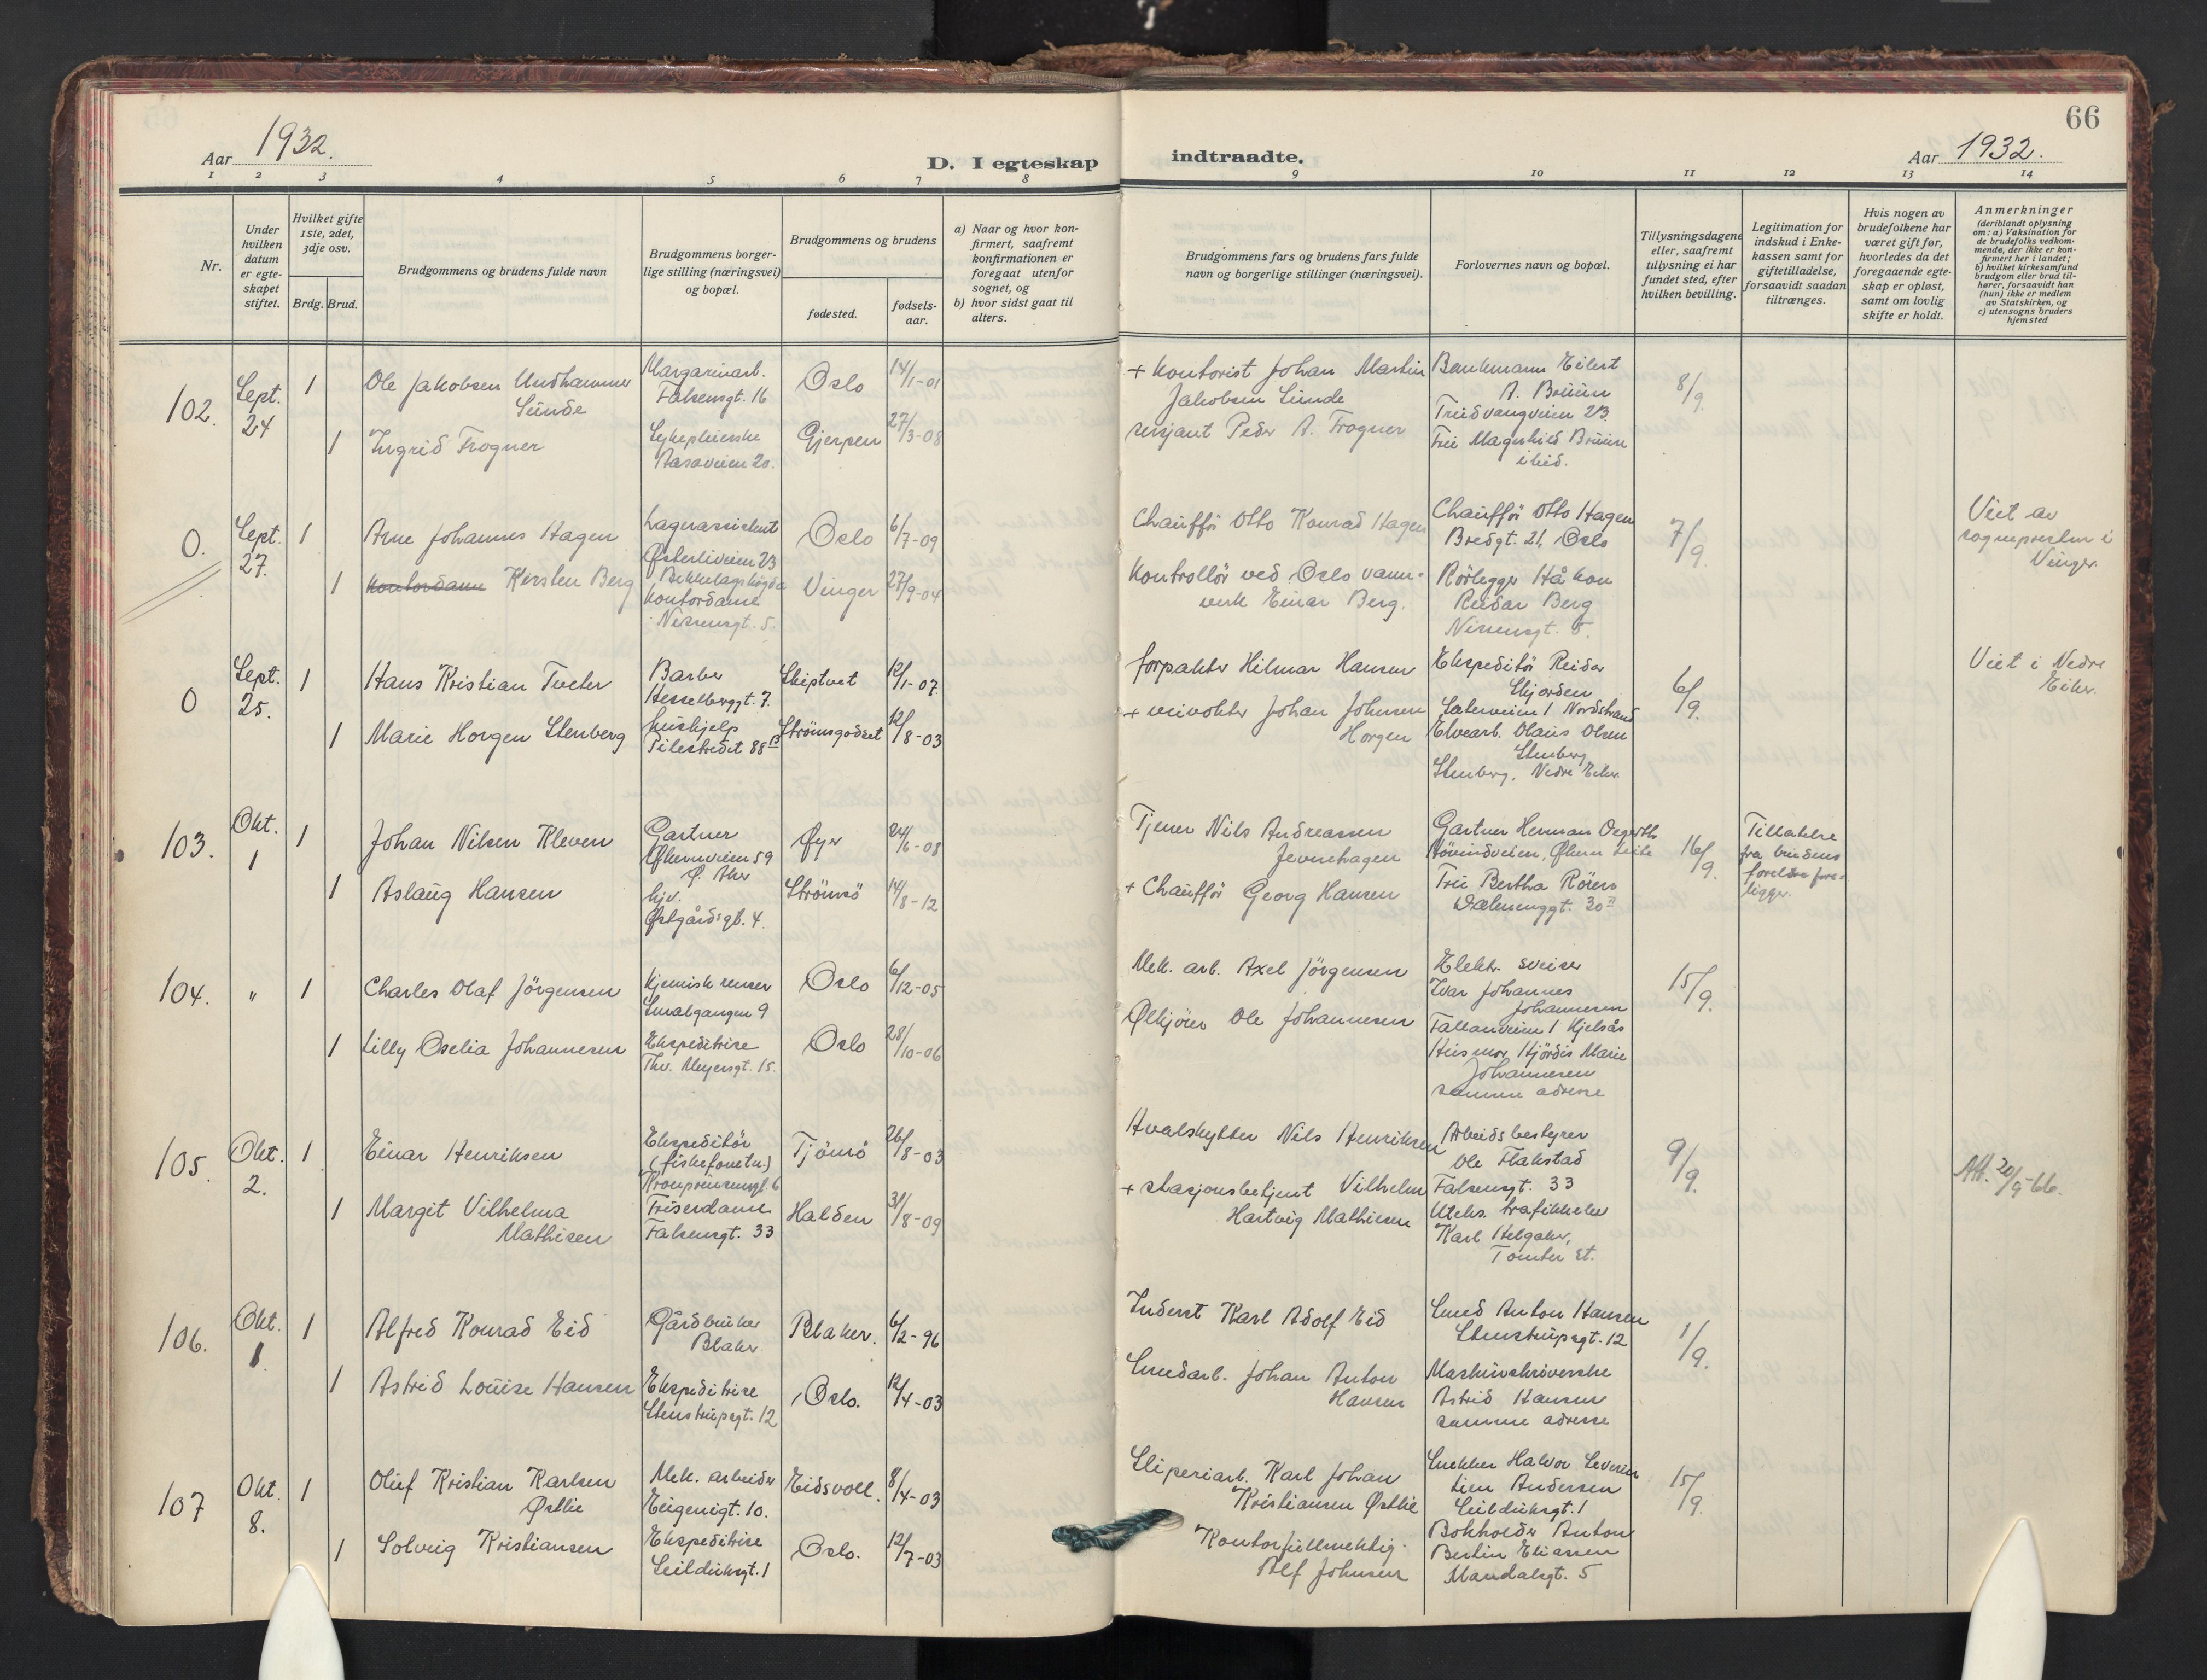 66
Aar 1932.
D. I egteskap indtraadte.
Aar 1932.
1 2 3 4 5 6 7 8 9 10 11 12 13 14
Nr.
Under hvilken datum er egteskapet stiftet.
Hvilket gifte 1ste, 2det, 3dje osv.
Brdg. Brud.
Brudgommens og brudens fulde navn
Brudgommens borgerlige stilling (næringsvei) og bopæl.
Brudgommens og brudens
fødested.
fødselsaar.
a) Naar og hvor konfirmert, saafremt konfirmationen er foregaat utenfor sognet, og
b) hvor sidst gaat til alters.
Brudgommens fars og brudens fars fulde navn og borgerlige stillinger (næringsvei).
Forlovernes navn og bopæl.
Tillysningsdagene eller, saafremt tillysning ei har fundet sted, efter hvilken bevilling.
Legitimation for indskud i Enkekassen samt for giftetilladelse, forsaavidt saadan tiltrænges.
Hvis nogen av brudefolkene har været gift før, hvorledes da det foregaaende egteskap er opløst, samt om lovlig skifte er holdt.
Anmerkninger
(deriblandt oplysning om: a) Vaksination for de brudefolks vedkommende, der ikke er konfirmert her i landet;
b) hvilket kirkesamfund brudgom eller brud tilhører, forsaavidt han (hun) ikke er medlem av Statskirken, og
c) utensogns bruders hjemsted
102. Sept. 24
1 Ole Jakobsen Undhammer Sunde
Margarinarb. Falsensgt. 16
Oslo 14/1-01
+ Kontorist Johan Martin Jakobsen Sunde
Bankmann Eilert A. Bruun
Trudvangveien 23
8/9.
1 Ingrid Frogner
Sykepleierske Aasaveien 20.
Gjerpen 27/3-08
sersjant Peder A. Frogner
Fru Magnhild Bruun ibid.
0. Sept. 27.
1 Arne Johannes Hagen
Lagerassistent Østerliveien 23 Bekkelagshøgda
Oslo 6/7-09
Chauffør Otto Konrad Hagen
Chauffør Otto Hagen Bredgt. 21, Oslo
7/9.
Viet av sognepresten i Vinger.
1 Kontordame Kirsten Berg
Kontordame Nissensgt. 5.
Vinger 27/9-04
Kontrollør ved Oslo vannverk Einar Berg.
Rørlegger Håkon Reidar Berg Nissensgt. 5.
0 Sept. 25.
1 Hans Kristian Tveter
Barber Hesselberggt. 7.
Skiptvet 12/1-07
forpakter Hilmar Hansen
Ekspeditør Reidar Skjorden
Sæterveien 1 Nordstrand
6/9.
Viet i Nedre Eiker.
1 Marie Horgen Stenberg
hushjelp Pilestredet 88 B
Strømsgodset 12/8-03
+ veivokter Johan Johnsen Horgen
Elvearb. Olaus Olsen Stenberg
Stenberg, Nedre Eiker.
103. Okt. 1
1 Johan Nilsen Kleven
Gartner Økernveien 59 Ø. Aker
Øyer 24/6-08
Tjener Nils Andreassen Jevnehagen
16/9.
Tillatelse fra brudens foreldre foreligger.
1 Aslaug Hansen
hjv. Østgårdsgt. 4.
Strømsø 14/8-12
+ Chauffør Georg Hansen
Fru Bertha Rörers
104. "
1 Charles Olaf Jörgensen
Kjemisk renser Smalgangen 9
Oslo 6/12-05
Mek. arb. Axel Jörgensen
Elektr. sveiser Ivar Johannes Johannesen
Kjelsås
15/9.
1 Lilly Oselia Johannesen
Ekspeditrise Thv. Meyersgt. 15.
Oslo 28/10-06
Ølkjører Ole Johannesen
Husmor Hjördis Marie Johannesen
samme adresse
105. Okt. 2.
1 Einar Henriksen
Ekspeditör Kronprinsensgt. 6
Tjömö 26/8-03
Hvalskytter Nils Henriksen
Arbeidsbestyrer Ole Flakstad
Falsensgt. 33
9/9.
Att. 20/9-66.
1 Margit Vilhelma Mathisen
Friserdame Falsensgt. 33
Halden 31/8-09
+ stasjonsbetjent Vilhelm Hartvig Mathisen
Karl Helgaker, Tomter st.
106. Okt. 1.
1 Alfred Konrad Eid
Gårdbruker Blaker
Blaker. 6/2-96
Inderst Karl Adolf Eid
Smed Anton Hansen Stenstrupsgt. 12
1/9.
1 Astrid Louise Hansen
Ekspeditrise Stenstrupsgt. 12
Oslo. 12/4-03
Smedarb. Johan Anton Hansen
Maskinskriverske Astrid Hansen
samme adresse
107 Okt. 8.
1 Oluf Kristian Karlsen Østlie
Mek. arbeider Eugenigt. 10.
Eidsvoll. 8/4-03
Sliperiarb. Karl Johan Kristiansen Østlie
Snekker Halvor Severin Andersen
Seilduksgt. 1
15/9.
1 Solveig Kristiansen
Ekspeditrise Seilduksgt. 1
Oslo. 12/7-03
Kontorfullmektig. Alf Johnsen
Bokholder Anton Bertin Eliassen
Mandalsgt. 5